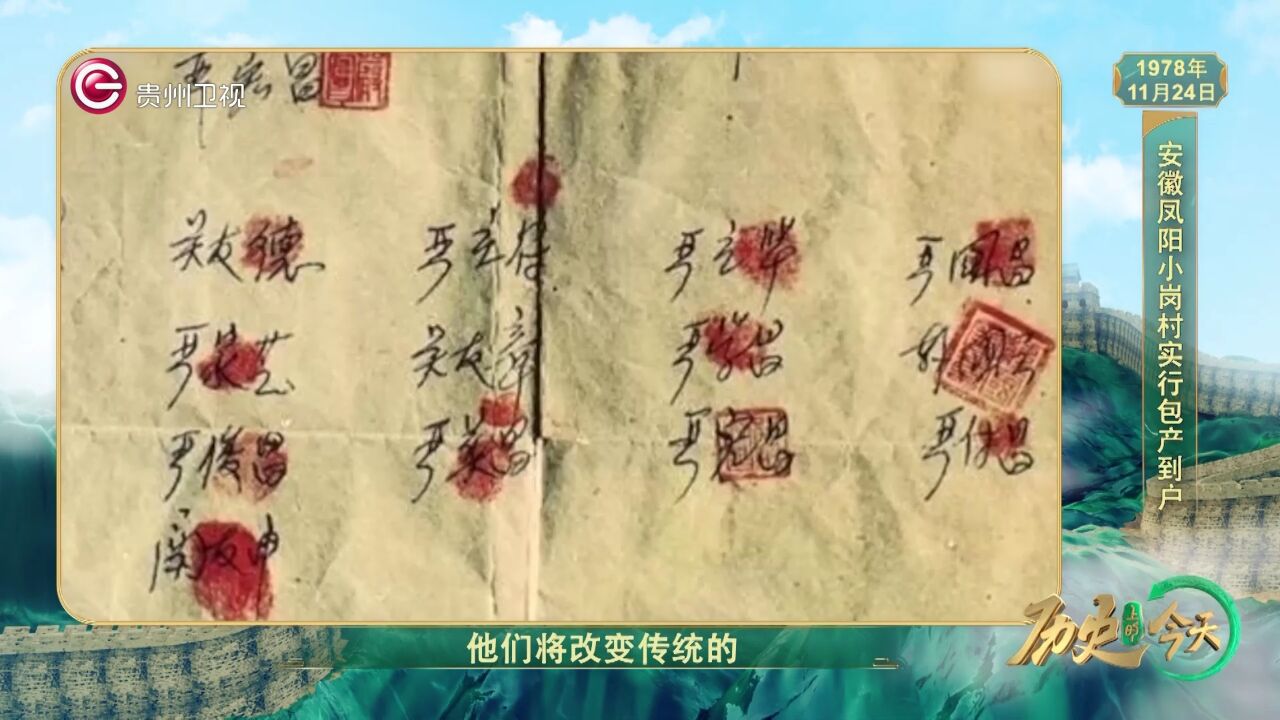 贵州卫视
1978年
11月24日
安徽凤阳小岗村实行包产到户
严宏昌
关友德 严立符 严立华 严国昌
严家芝 关友章 严学昌 韩国云
严俊昌 严美昌 严宏昌 严付昌
关友申
他们将改变传统的
历史上的今天